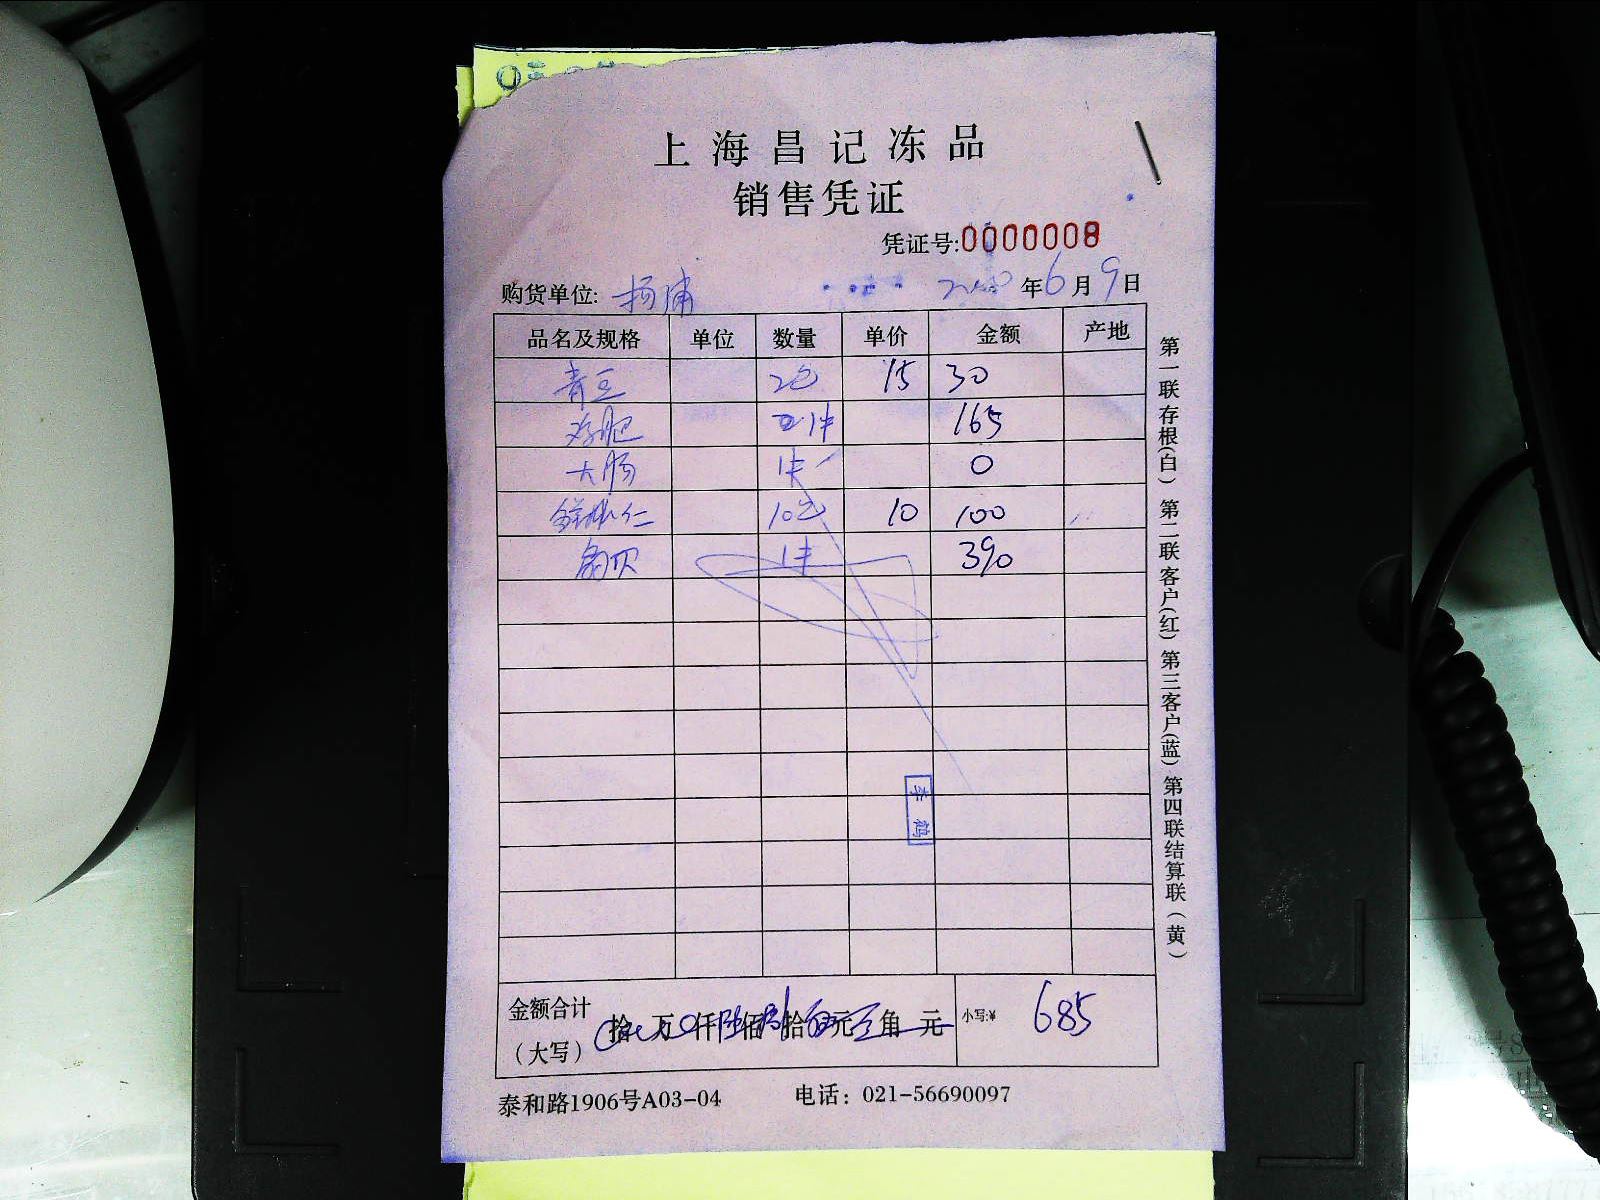 上海昌记冻品
销售凭证
凭证号:0000008
购货单位: 杨浦 年6月9日
品名及规格 单位 数量 单价 金额 产地
青豆 2包 15 30
1件 165
大肠 1件 0
虾仁 10包 10 100
扇贝 1件 390
李鹤
金额合计 拾 万 仟 佰 拾 元 角 元 小写:¥ 685
（大写）
泰和路1906号A03-04 电话：021-56690097
第一联存根(白) 第二联客户(红) 第三客户(蓝) 第四联结算联(黄)